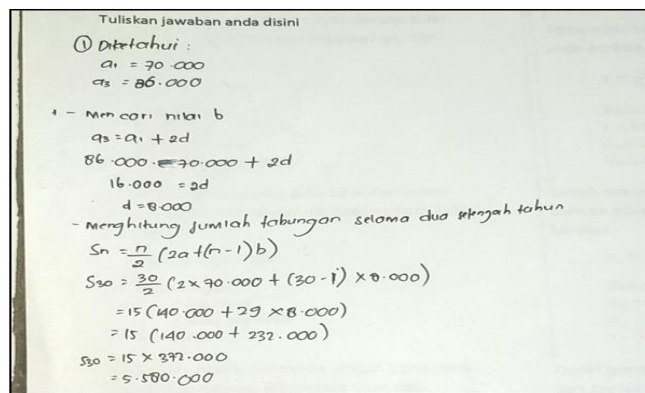 Tuliskan jawaban anda disini
① Diketahui :
a₁ = 70.000
a₃ = 86.000
1 - Mencari nilai b
a₃ = a₁ + 2d
86.000 = 70.000 + 2d
16.000 = 2d
d = 8.000
- Menghitung Jumlah tabungan selama dua setengah tahun
Sn = n/2 (2a+(n-1)b)
S30 = 30/2 (2 x 70.000 + (30-1) x 8.000)
= 15 (140.000 + 29 x 8.000)
= 15 (140.000 + 232.000)
S30 = 15 x 372.000
= 5.580.000